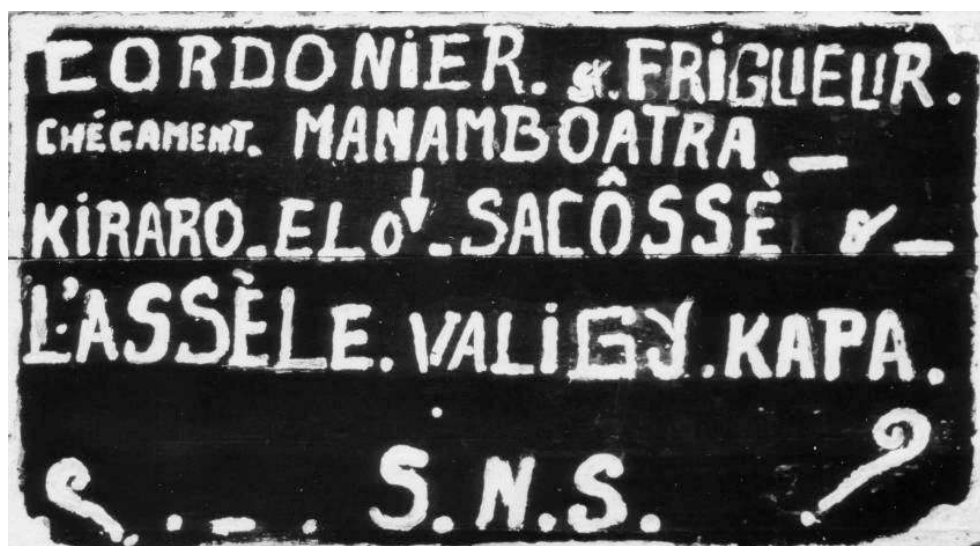 CORDONiER. st. FRiGUEUR.
CHÉCAMENT. MANAMBOATRA _
KiRARO_ELO_SACÔSSÈ _
L'ASSÈLE. VALiGY. KAPA.
S.N.S.